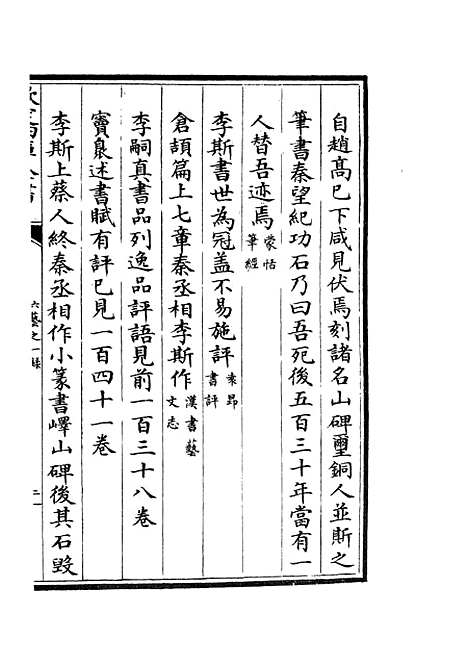 自趙髙已下咸見伏焉刻諸名山碑璽銅人並斯之
筆書秦望紀功石乃曰吾死後五百三十年當有一
人替吾迹焉蒙恬筆經
李斯書世為冠盖不易施評袁昻書評
倉頡篇上七章秦丞相李斯作漢書藝文志
李嗣真書品列逸品評語見前一百三十八卷
竇臮述書賦有評已見一百四十一卷
李斯上蔡人終秦丞相作小篆書嶧山碑後其石毁
六藝之一録